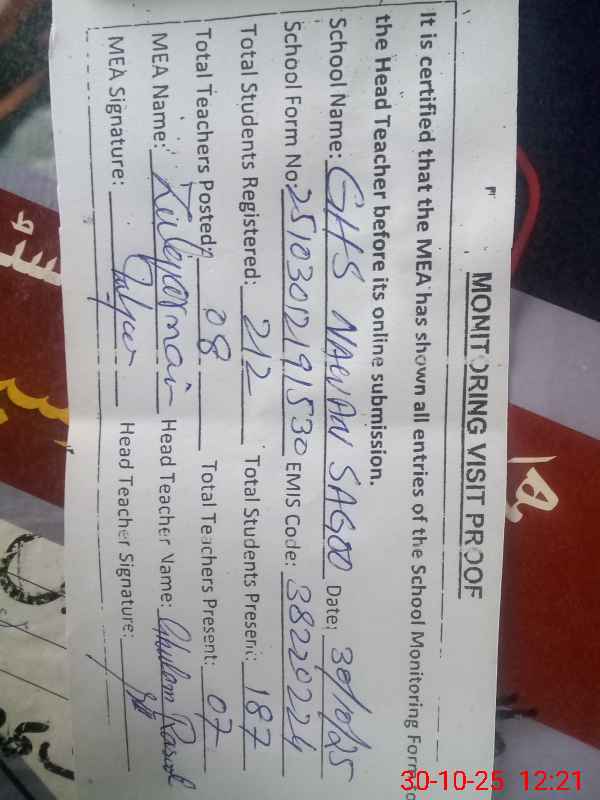 MONITORING VISIT PROOF
It is certified that the MEA has shown all entries of the School Monitoring Form to
the Head Teacher before its online submission.
School Name: GHS NAWAN SAGOO Date: 30/10/25
School Form No: 25103012191530 EMIS Code: 38220224
Total Students Registered: 212 Total Students Present: 187
Total Teachers Posted: 08 Total Teachers Present: 07
MEA Name: Head Teacher Name: Ghulam Rasool
MEA Signature: Head Teacher Signature:
30-10-25 12:21